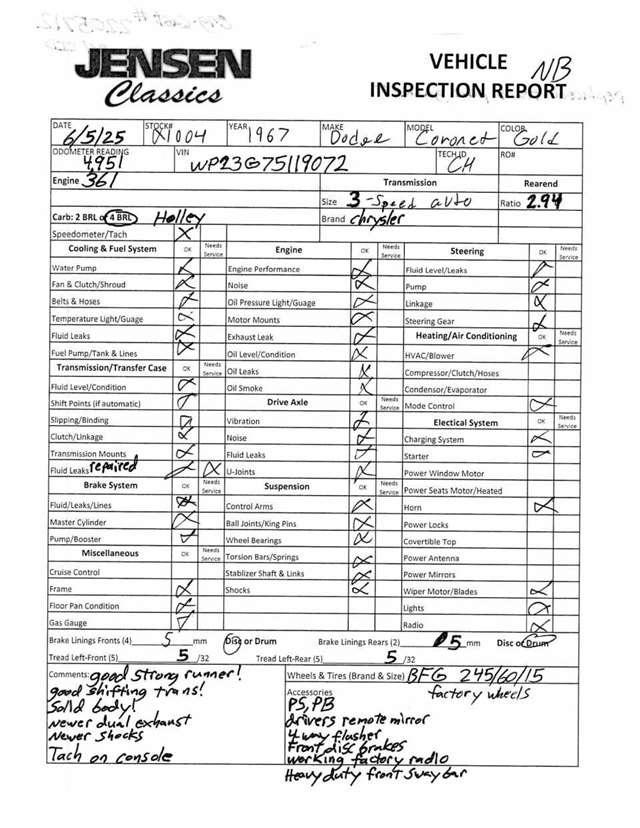 JENSEN
Classics
VEHICLE
INSPECTION REPORT
NB
DATE 6/5/25 STOCK# X1004 YEAR 1967 MAKE Dodge MODEL Coronet COLOR Gold
ODOMETER READING 4,951 VIN WP23G75119072 TECH ID CH RO#
Engine 361 Transmission Rearend
Size 3-Speed auto Ratio 2.94
Carb: 2 BRL or 4 BRL Holley Brand chrysler
Speedometer/Tach
Cooling & Fuel System OK Needs Service Engine OK Needs Service Steering OK Needs Service
Water Pump Engine Performance Fluid Level/Leaks
Fan & Clutch/Shroud Noise Pump
Belts & Hoses Oil Pressure Light/Guage Linkage
Temperature Light/Guage Motor Mounts Steering Gear
Fluid Leaks Exhaust Leak Heating/Air Conditioning OK Needs Service
Fuel Pump/Tank & Lines Oil Level/Condition HVAC/Blower
Transmission/Transfer Case OK Needs Service Oil Leaks Compressor/Clutch/Hoses
Fluid Level/Condition Oil Smoke Condensor/Evaporator
Shift Points (if automatic) Drive Axle OK Needs Service Mode Control
Slipping/Binding Vibration Electical System OK Needs Service
Clutch/Linkage Noise Charging System
Transmission Mounts Fluid Leaks Starter
Fluid Leaks repaired U-Joints Power Window Motor
Brake System OK Needs Service Suspension OK Needs Service Power Seats Motor/Heated
Fluid/Leaks/Lines Control Arms Horn
Master Cylinder Ball Joints/King Pins Power Locks
Pump/Booster Wheel Bearings Covertible Top
Miscellaneous OK Needs Service Torsion Bars/Springs Power Antenna
Cruise Control Stablizer Shaft & Links Power Mirrors
Frame Shocks Wiper Motor/Blades
Floor Pan Condition Lights
Gas Gauge Radio
Brake Linings Fronts (4) 5 mm Disc or Drum Brake Linings Rears (2) 5 mm Disc or Drum
Tread Left-Front (5) 5 /32 Tread Left-Rear (5) 5 /32
Comments: good strong runner! Wheels & Tires (Brand & Size) BFG 245/60/15
good shifting trans! Accessories factory wheels
Solid body! PS, PB
newer dual exhaust drivers remote mirror
Newer shocks 4 way flasher
Tach on console Front disc brakes
working factory radio
Heavy duty front sway bar